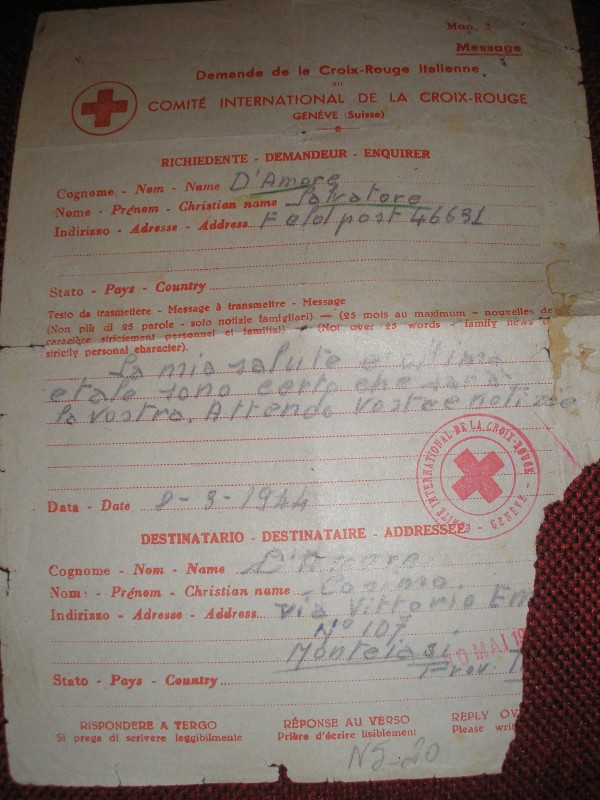 Mod. 3
Message
Demande de la Croix-Rouge Italienne
au
COMITÉ INTERNATIONAL DE LA CROIX-ROUGE
GENÈVE (Suisse)
RICHIEDENTE - DEMANDEUR - ENQUIRER
Cognome - Nom - Name D'Amore
Nome - Prénom - Christian name Salvatore
Indirizzo - Adresse - Address Feldpost 46691
Stato - Pays - Country
Testo da trasmettere - Message à transmettre - Message
(Non più di 25 parole - solo notizie famigliari) — (25 mots au maximum - nouvelles de
caractère strictement personnel et familial) - (Not over 25 words - family news of
strictly personal character).
La mia salute e ottima
e tale sono certo che sara
la vostra. Attendo vostre notizie
COMITÉ INTERNATIONAL DE LA CROIX-ROUGE - GENÈVE
Data - Date 8-3-1944
DESTINATARIO - DESTINATAIRE - ADDRESSEE
Cognome - Nom - Name D'Amore
Nome - Prénom - Christian name Cosimo.
Indirizzo - Adresse - Address via Vittorio Em
N° 107
Monteiasi
10 MAI 19
Prov.
Stato - Pays - Country
RISPONDERE A TERGO
Si prega di scrivere leggibilmente
RÉPONSE AU VERSO
Prière d'écrire lisiblement
REPLY OV
Please writ
N5-20